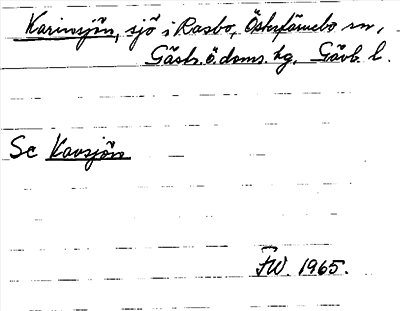 Karinsjön, sjö i Rasbo, Österfärnebo sn,
Gästr. ö. doms. hg, Gävb. l.
Se Kavsjön
FW. 1965.